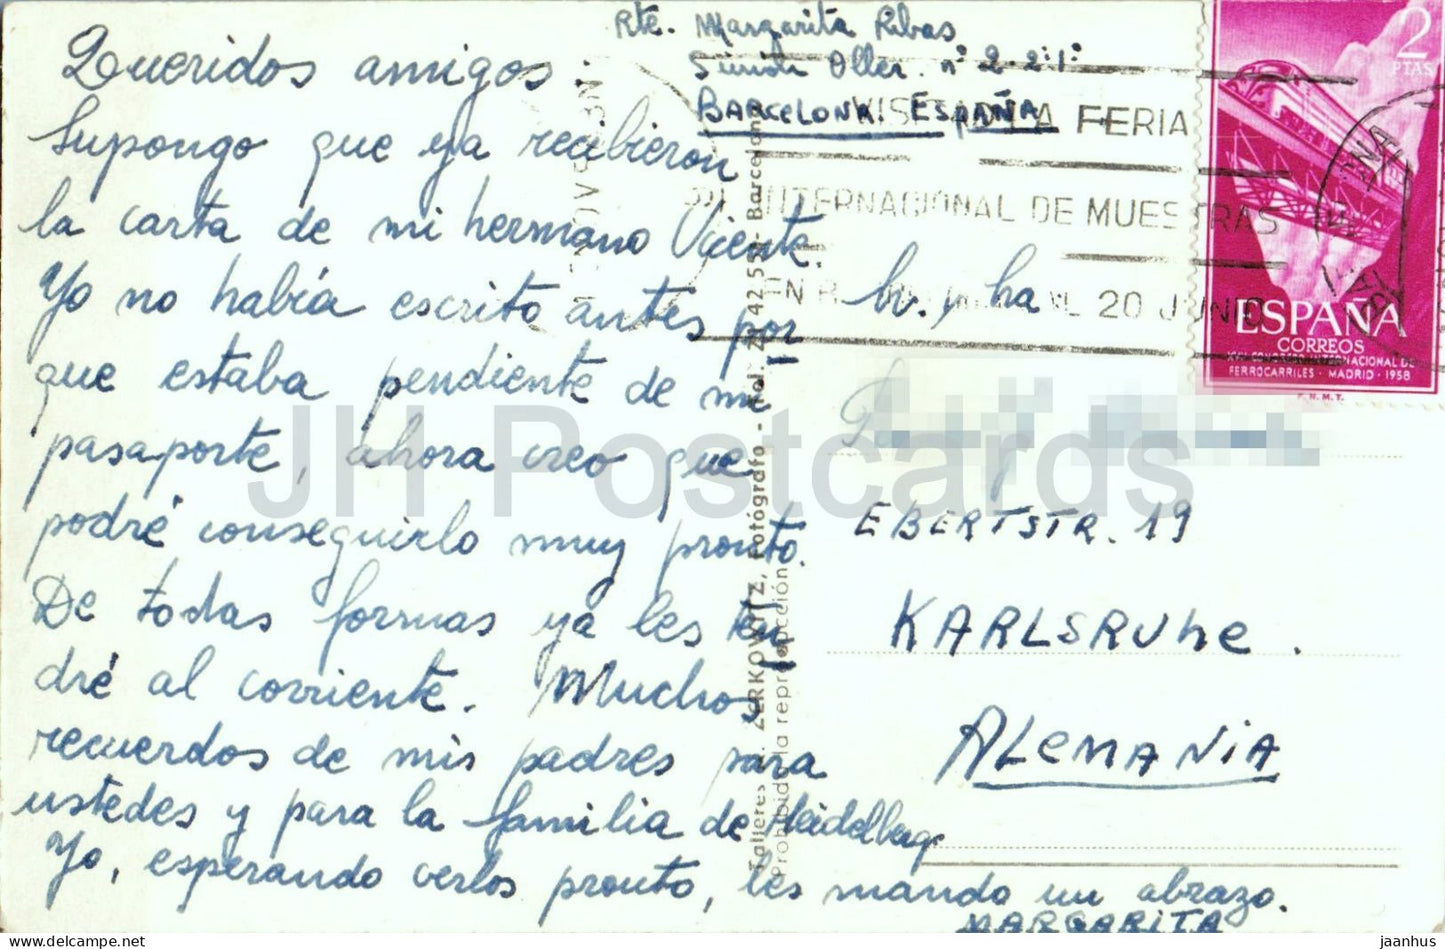 Queridos amigos
Supongo que ya recibieron
la carta de mi hermano Vicente.
Yo no había escrito antes por
que estaba pendiente de mi
pasaporte, ahora creo que
podré conseguirlo muy pronto.
De todas formas ya les ten
dré al corriente. Muchos
recuerdos de mis padres para
ustedes y para la familia de Heidelberg
Yo, esperando verlos pronto, les mando un abrazo.
MARGARITA
Rte. Margarita Ribas
Oller. nº 2-2º1º
BARCELONA. ESPAÑA
LA FERIA
INTERNACIONAL DE MUESTRAS
EN 20 JUNIO
2
PTAS
ESPAÑA
CORREOS
XVII CONGRESO INTERNACIONAL DE
FERROCARRILES - MADRID - 1958
F.N.M.T.
y
EBERTSTR. 19
KARLSRUhe.
ALEMANIA
Talleres A. ZERKOWITZ, Fotógrafo - Tel. 21 42 52 - Barcelona
Prohibida la reproducción
JH Postcards
delcampe.net
jaanhus